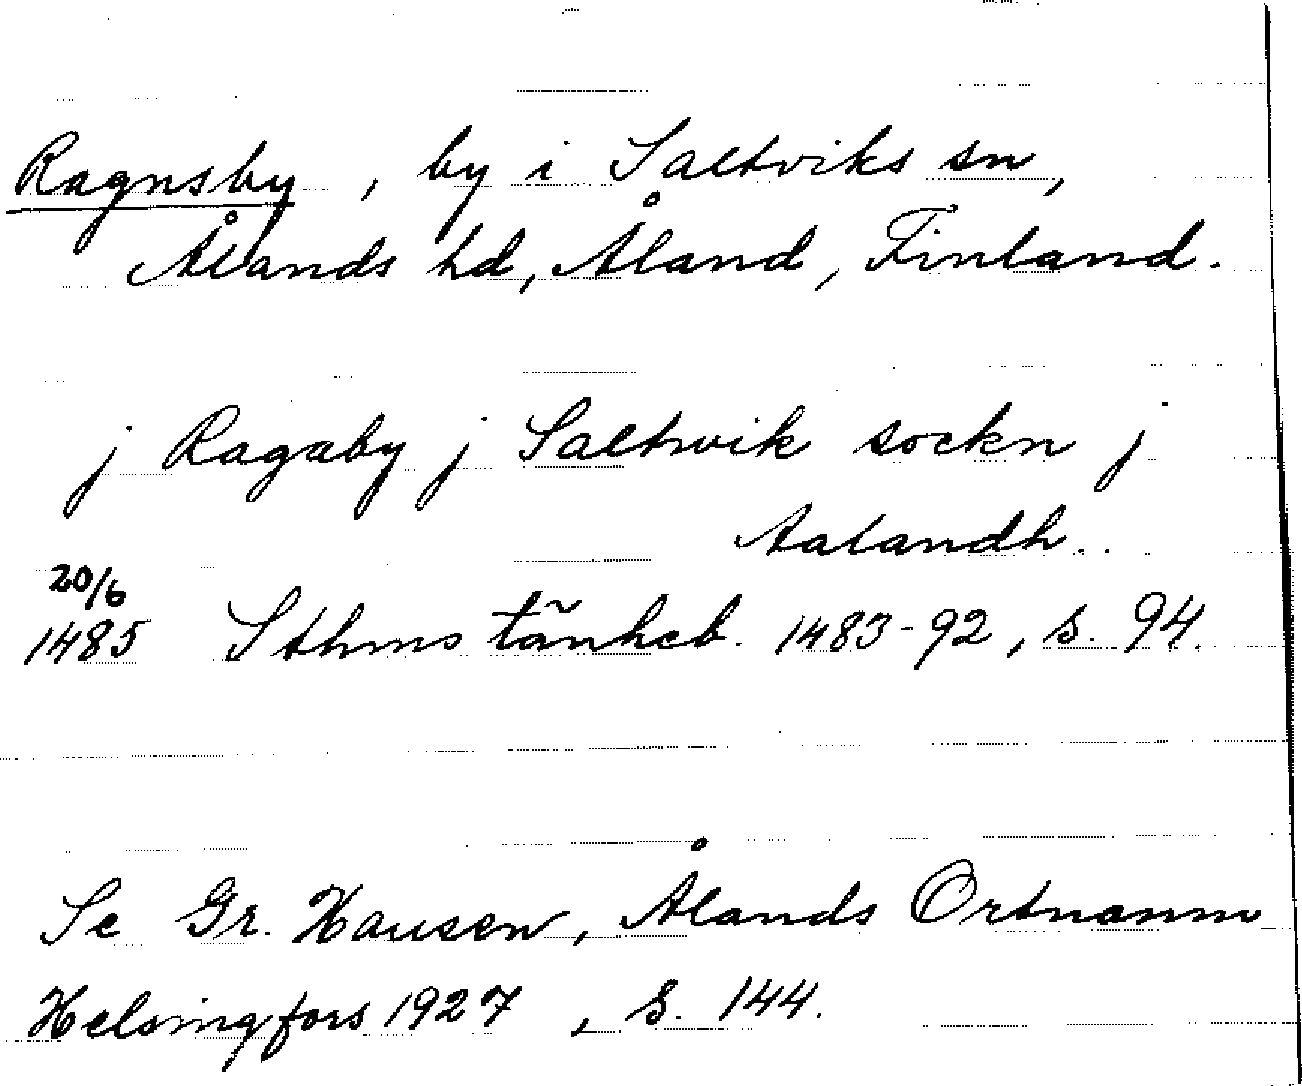 Ragnsby, by i Saltviks sn,
Ålands hd, Åland, Finland.
j Ragaby j Saltwik sockn j
Aalandh..
20/6
1485 Sthms tänkeb. 1483-92, s. 94.
Se Gr. Hausen, Ålands Ortnamn
Helsingfors 1927, S. 144.